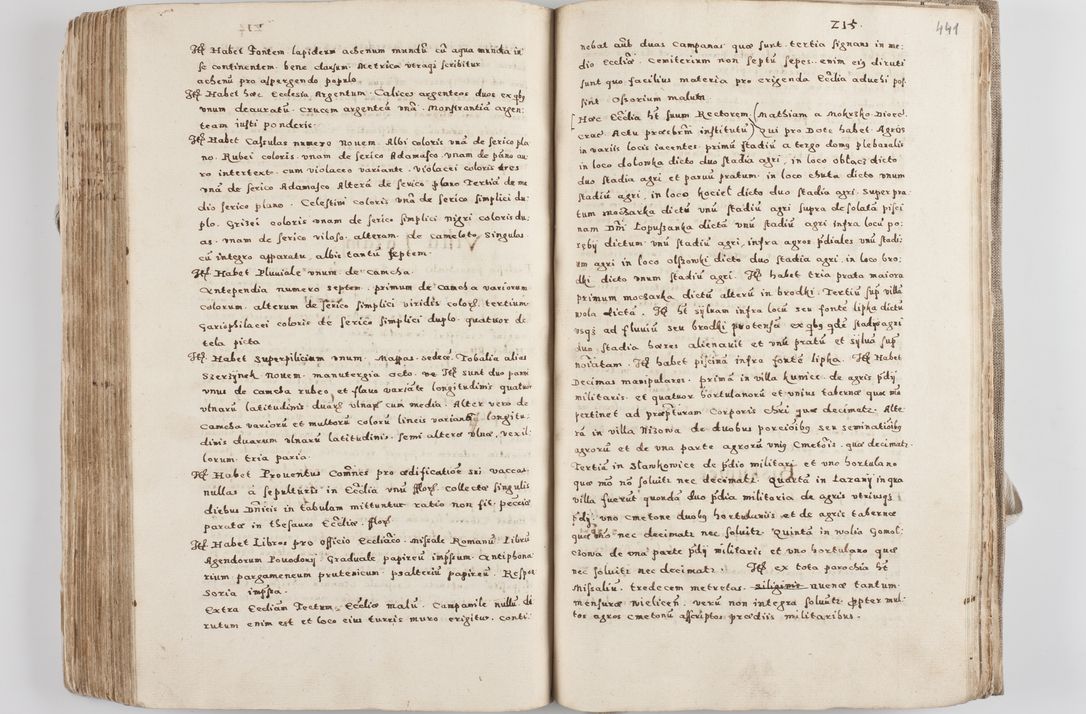 Itē Habet Fontem lapideum achenum mundū cū aqua mundita in
se continentem bene clausum. Metrica veraqj scribitur
achenū pro aspergendo populo.
Itē Habet hæc Ecclesia Argentum. Calices argenteos duos ex qbꝫ
vnum deauratū. Crucem argenteā vnā. Monstrantiā argen:
team iusti ponderis.
Itē Habet Casulas numero nouem. Albi coloris vnā de serico pla
no. Rubei coloris vnam de serico Adamasco, vnam de pāno au:
ro intertext. cum violaceo variante. violacei coloris tres
vnā de serico Adamasco. Alterā de serico plano Tertiā de me
dio serico plano. Celestini coloris vnā de serico simplici du:
plo. Grisei coloris vnam de serico simplici nigri coloris du:
as. vnam de serico viloso. alteram de Cameloto, Singulas
cū integro apparatu, albis tantū septem.
Itē Habet Pluuiale vnum de camcha.
Antependia numero septem. primum de camcha variorum
colorum. alterum de serico simplici viridis coloꝝ. tertium
Gariophilacei coloris de serico simplici duplo. quatuor de
tela picta
Itē Habet superpilicium vnum. Mappas sedecē. Tobalia alias
Szerzynek Nouem. manutergia octo. ve Itē sunt duo panni
vnus de camcha rubeo et flauo variāte longitudinis quatuor
vlnarū latitudinis duarū vlnarū cum media. Alter vero de
Camcha variorū et multorū colorū lineis varians. longitu:
dinis duarum vlnarū latitudinis semi alteræ vlnæ, vexil:
lorum tria paria.
Itē Habet Prouentus Comnes pro ædificatioe sex vaccas
nullas a sepulturis in Ecclia vnū floꝝ. collectæ singulis
diebus Dnicis in tabulam mittuntur ratio non fit. peccia
paratæ in thesauro Eccliæ. floꝝ
Itē Habet Libros pro officio Eccliaco. Missale Romanū Librū
Agendorum Pouodouj Graduale papireū impssum. Antiphona:
rium pargameneum prutenicum. psalteriū papireū. Respon
soria impssa.
Extra Eccliam Tectum Eccliæ malū. Campanile nullū di
rutum enim est et loco eius turris muro erigitur. conti:
215.
441
nebat aūt duas campanas quæ sunt. tertia signans in me:
dio Eccliæ. Cemiterium non septū sepes. enim eiꝫ diruti
sunt quo facilius materia pro erigenda Ecclia aduehi pos
sint. Ossorium malum.
[Hæc Ecclia hēt suum Rectorem (Mathiam a Mokrsko Dioec.
Crac. Actu præsbrm institutū) Qui pro Dote habet. Agros
in variis locis iacentes. primū stadiū a tergo domꝫ plebanalis
in loco dolomka dicto duo stadia agri, in loco oblacz dicto
duo stadia agri et paruū pratum. in loco chuta dicto vnum
stadiū agri, in loco kociel dicto duo stadia agri. Super pra:
tum moczarka dictū vnū stadiū agri supra desolatā pisci
nam Dni Lopuszanka dictā vnū stadiū agri infra locū po:
ręby dictum vnū stadiū agri, infra agros pdiales vnū stadi:
um agri in loco olszowki dicto duo stadia agri. in loco bro:
dki dicto vnum stadiū agri. Itē habet tria prata maiora
primum moczarka dictū alterū in brodki. Tertiū sup villā
wola dictā. Itē hēt syluam infra locū seu fontē lipka dictū
vsqꝫ ad fluuiū seu brodki protensā ex qbꝫ qdē stadys agri
duo stadia hæres alienauit et vnū pratū et syluā sup
noiatam. Itē habet piscinā infra fontē lipka. Itē Habet
Decimas manipulares. primā in villa kunice de agris pdij
militaris. et quatuor hortulanorū et vnius tabernæ quæ mō
pertinet ad præpturam Corporis Chri quæ decimatr. Alte:
rā in villa Nizowa de duobus porcioibꝫ seu seminatioibꝫ
agrorū et de vna parte agrorū vniꝫ Cmetōis. quæ decimatr.
Tertiā in Stawkowice de pdio militari et vno hortulano
quæ mō nō soluitr nec decimatr. Quartā in Lazany in qua
villa fuerūt quondā duo pdia militaria de agris vtriusqꝫ
pdij vno cmetone duobꝫ hortulanis et de agris tabernæ
quæ mō nec decimatr nec soluitr. Quintā in wolia Gomol:
ciowa de vna parte pdij militaris et vno hortulano quæ
nec soluitr nec decimatr. Itē ex tota parochia hēt
Missaliū. tredecem metretas. siliginis auenæ tantum
mensuræ wielicen. verū non integra soluūtr ppter mul:
tos agros cmetonū asscriptos prædiis militaribus.